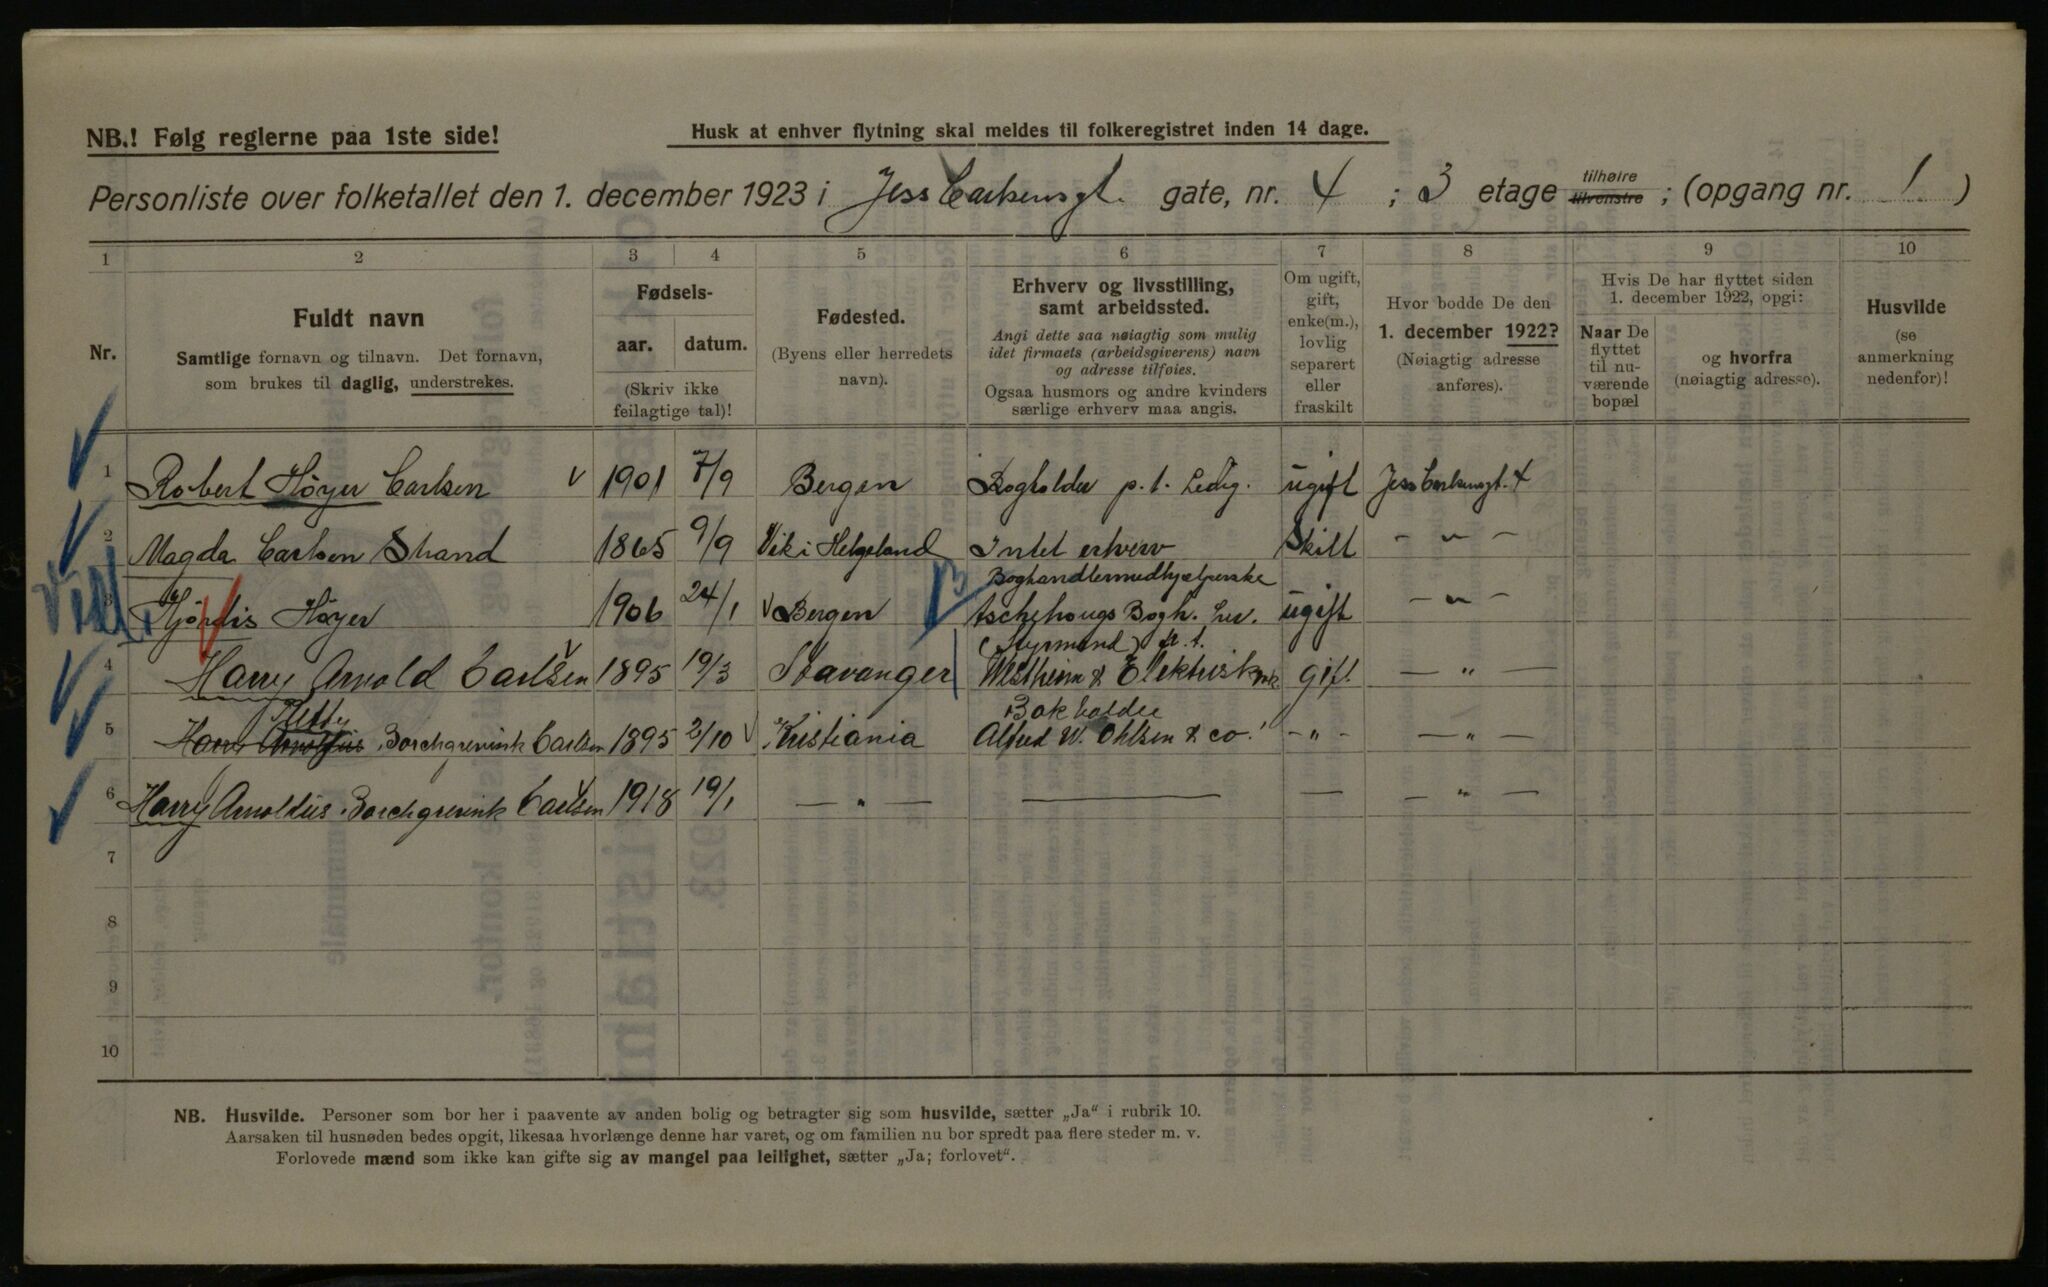 NB.! Følg reglerne paa 1ste side!
Husk at enhver flytning skal meldes til folkeregistret inden 14 dage.
Personliste over folketallet den 1. december 1923 i Jess Carlsensgt. gate, nr. 4 ; 3 etage tilhøire tilvenstre ; (opgang nr. 1 )
1 2 3 4 5 6 7 8 9 10
Nr.
Fuldt navn
Samtlige fornavn og tilnavn. Det fornavn,
som brukes til daglig, understrekes.
Fødsels-
aar. datum.
(Skriv ikke
feilagtige tal)!
Fødested.
(Byens eller herredets
navn).
Erhverv og livsstilling,
samt arbeidssted.
Angi dette saa nøiagtig som mulig
idet firmaets (arbeidsgiverens) navn
og adresse tilføies.
Ogsaa husmors og andre kvinders
særlige erhverv maa angis.
Om ugift,
gift,
enke(m.),
lovlig
separert
eller
fraskilt
Hvor bodde De den
1. december 1922?
(Nøiagtig adresse
anføres).
Hvis De har flyttet siden
1. december 1922, opgi:
Naar De
flyttet
til nu-
værende
bopæl
og hvorfra
(nøiagtig adresse).
Husvilde
(se
anmerkning
nedenfor)!
1 Robert Höyer Carlsen 1901 7/9 Bergen Bogholder p.t. Ledig. ugift Jess Carlsensgt. 4
2 Magda Carlsen Strand 1865 9/9 Vik i Helgeland Intet erhverv Skilt — " —
Boghandlermedhjelperske
3 Hjördis Höyer 1906 24/1 Bergen Aschehougs Bogh. ugift — " —
(Styrmand) p.t.
4 Harry Arnold Carlsen 1895 19/3 Stavanger gift — " —
Bokholder
5 Harry Arnoldius Borchgrevink Carlsen 1895 2/10 Kristiania Alfred W. Ohlsen & co. — " — — " —
6 Harry Arnoldius Borchgrevink Carlsen 1918 19/1 — " — — — — " —
7
8
9
10
NB. Husvilde. Personer som bor her i paavente av anden bolig og betragter sig som husvilde, sætter „Ja“ i rubrik 10.
Aarsaken til husnøden bedes opgit, likesaa hvorlænge denne har varet, og om familien nu bor spredt paa flere steder m. v.
Forlovede mænd som ikke kan gifte sig av mangel paa leilighet, sætter „Ja; forlovet“.